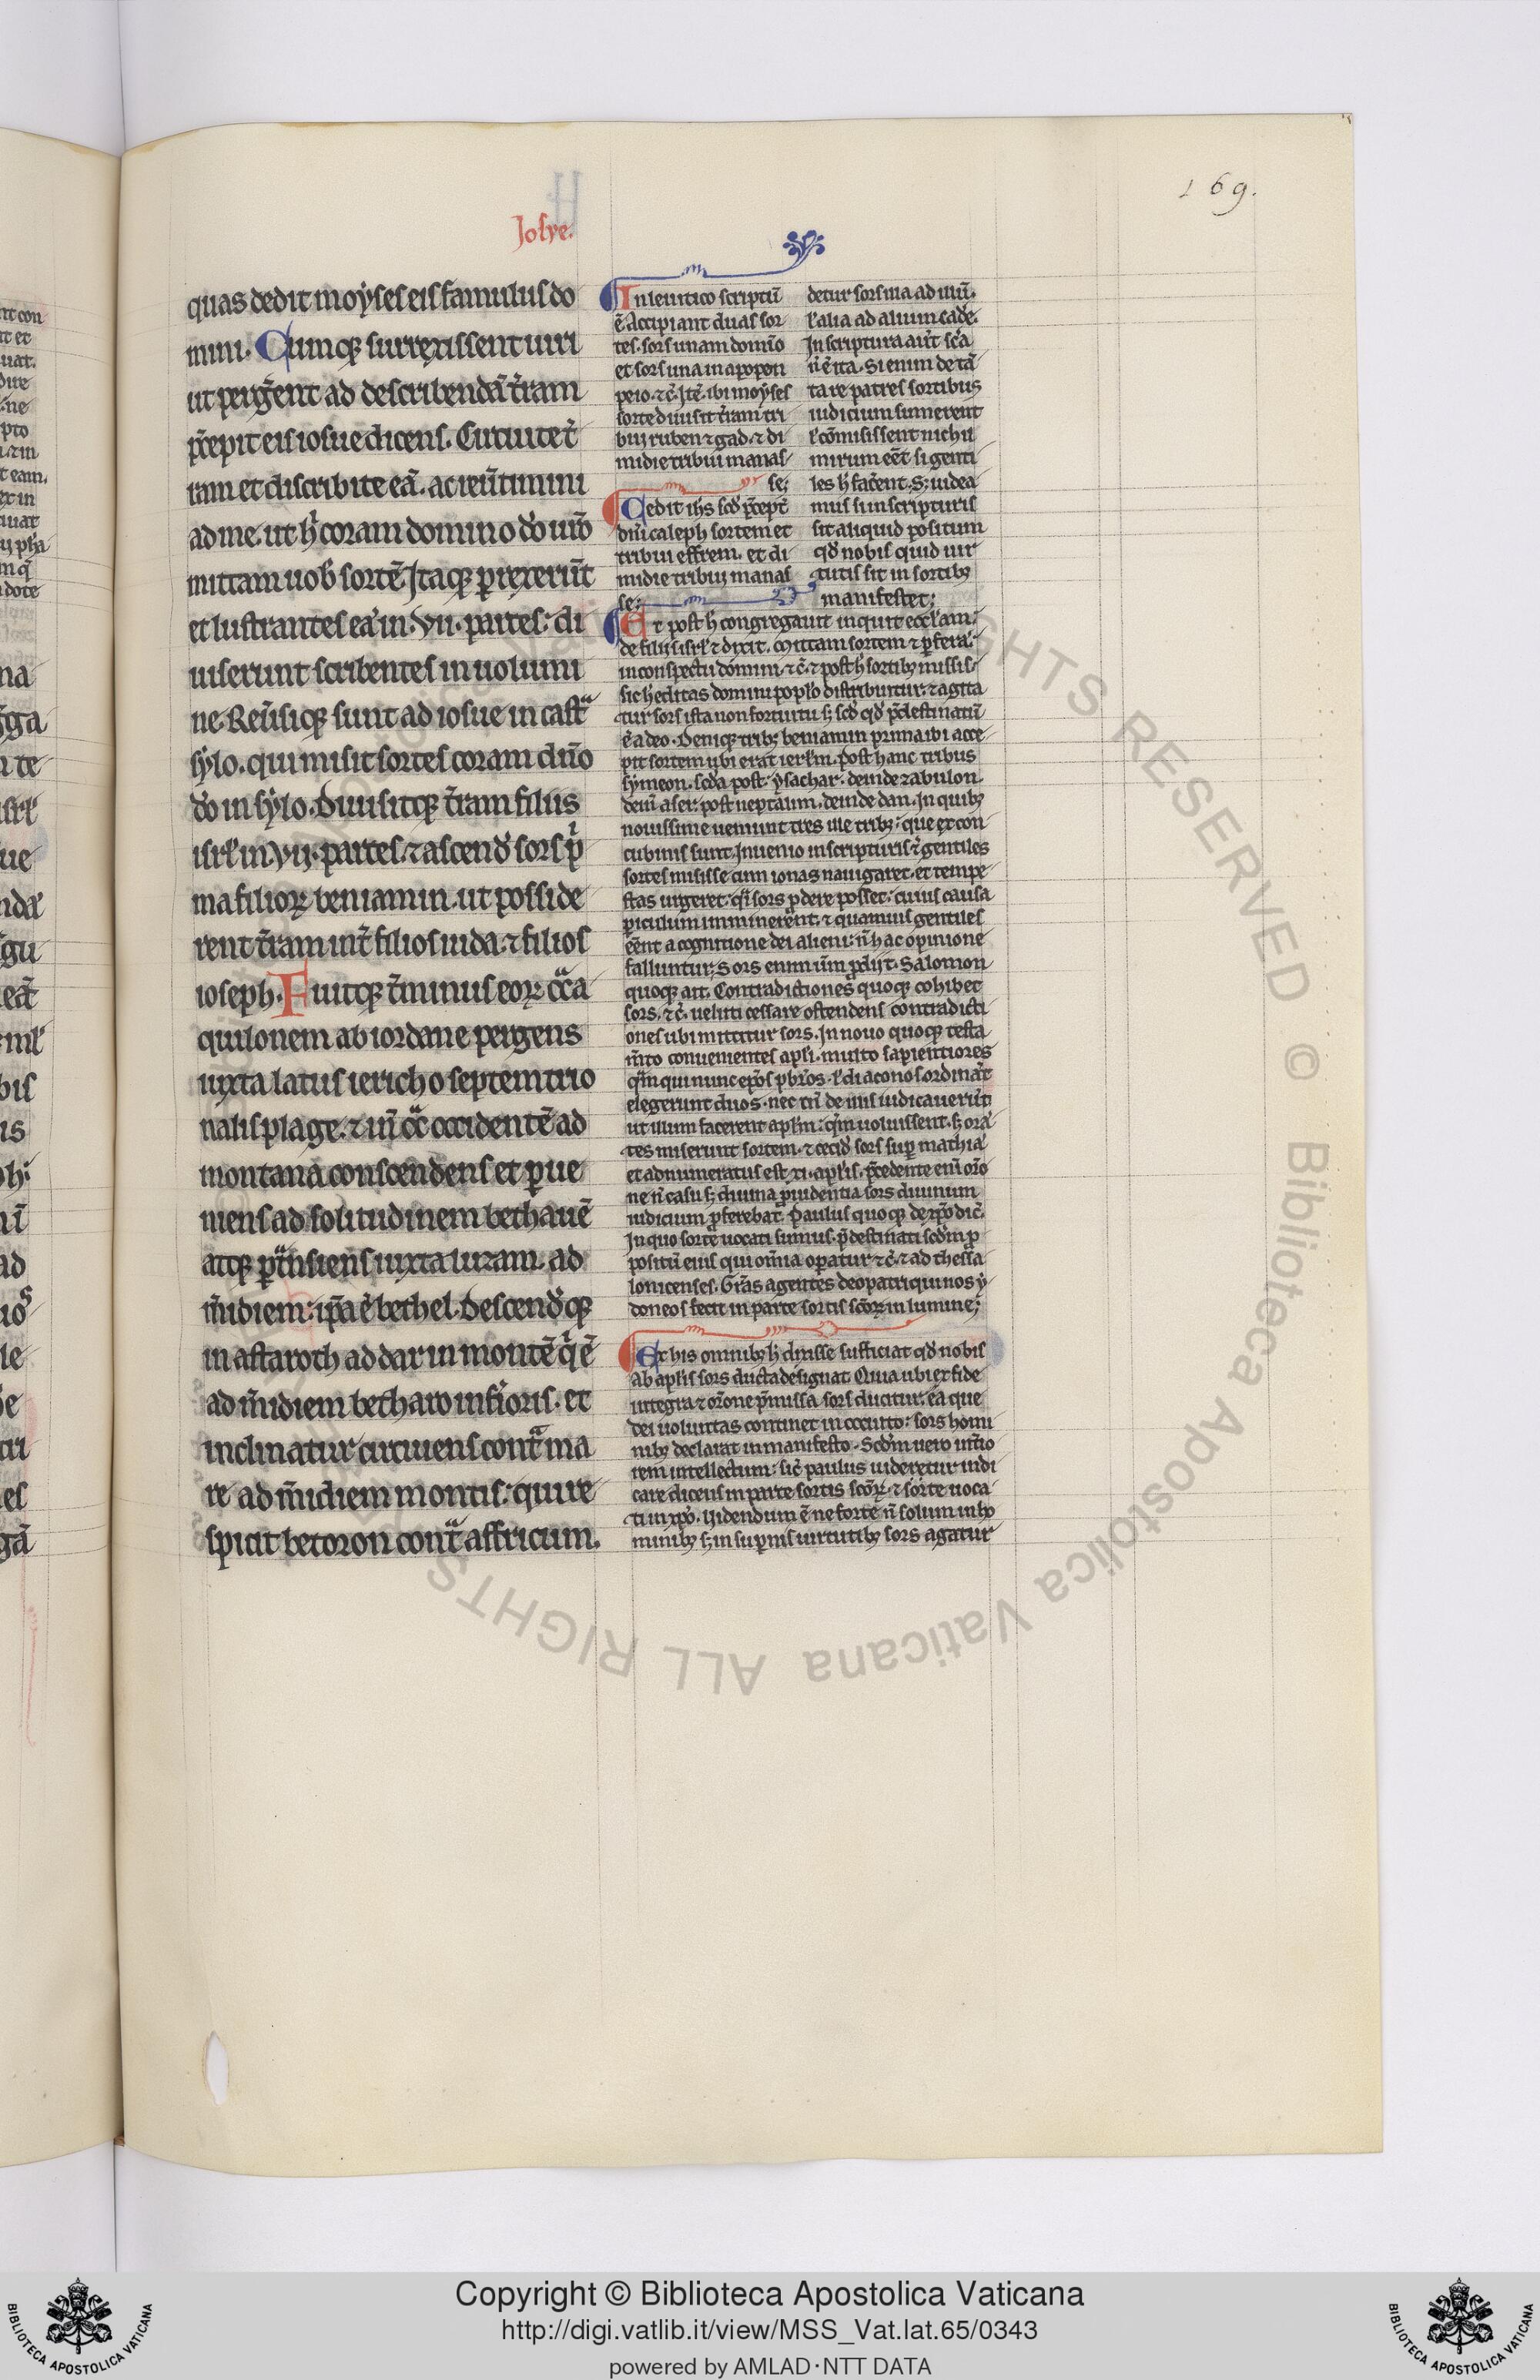 169.
Josve.
quas dedit moyses eis famulus do
mini. Cumq; surrexissent uiri
ut perg̃ent ad describendã t̃ram
p̃cepit eis iosue dicens. Circuite t̃
ram et discribite eã. ac reũtimini
ad me. ut h̾ coram domino dõ ur̃o
mittam uob̾ sortẽ. Itaq; prexerũt
et lustrantes eã in. vii. partes: di
uiserunt scribentes in uolumi
ne. Reũsiq; sunt ad iosue in castͣ
sylo. qui misit sortes coram dño
dõ in sylo. Diuisitq; t̃ram filiis
isrl̾ in vij. partes. ⁊ ascend̾ sors pͥ
ma filioꝝ beniamin. ut posside
rent t̃ram int̃ filios iuda. ⁊ filios
ioseph. Fuitq; t̃minus eoꝝ cͣ a
quilonem ab iordane pergens
iuxta latus iericho septemtrio
nalis plage. ⁊ ĩñ cͣ occidentẽ ad
montana conscendens et perue
niens ad solitudinem bethauẽ
atq; ptͣnsiens iuxta luzam. ad
m̃idiem: ip̃a ẽ bethel. Descend̾q;
in astaroth addar in montẽ qͥ ẽ
ad m̃idiem betharo inf̾ioris. et
inclinatur circuiens contͣ ma
re ad m̃idiem montis: qui re
spicit betoron contͣ affricum.
In leuitico scriptũ
ẽ. Accipiant duas sor
tes. sors unam domĩo
et sors una in apopon
peio. ⁊c̃. Itẽ. ibi moyses
sorte diuisit t̃ram tri
bui ruben ⁊ gad. ⁊ di
midie tribui manas
se:
Cedit ih̾s scd̾ p̃cept̃
dñi caleph sortem et
tribui effrem. et di
midie tribui manas
se:
detur sors ina ad illũ.
l̾ alia ad alium cade.
In scriptura aũt sc̃a
ñ ẽ ita. Si enim de tã
ta re patres sortibus
iudicium sumerent
l̾ cõmisissent nichil
mirum eẽt si genti
les h̾ facẽnt. S; uidea
mus si in scripturis
sit aliquid positum
qd̾ nobis quid uir
tutis sit in sortib;
manifestet:
Et post h̾ congregauit inquit eccl̾am
de filiis isrl̾ ⁊ dixit. Mittam sortem ⁊ pferã
in conspectu domini. ⁊c̃. ⁊ post h̾ sortib; missis
sic h̾editas domini popl̾o distribuitur. ⁊ agita
tur sors ista non fortuitu s; scd̾ qd̾ p̃destinatũ
ẽ a deo. Deniq; trib; beniamin prima ibi acce
pit sortem ubi erat ierl̾m. post hanc tribus
symeon. scd̾a post. ysachar. deinde zabulon.
dein̾ aser. post neptalim. deinde dan. In quib;
nouissime ueniunt tres ille trib;. que ex con
cubinis sunt. Inuenio in scripturis ⁊ gentiles
sortes misisse cum ionas nauigaret. et tempe
stas urgeret. qͥsi sors pdere posset: cuius causa
periculum immineret. ⁊ quamuis gentiles
eẽnt a cognitione dei alieni: ñ hac opinione
falluntur: Sors enim uerum pdijt. Salomon
quoq; ait. Contradictiones quoq; cohibet
sors. ⁊c̃. ueluti cessare ostendens contradicti
ones ubi mittitur sors. In nouo quoq; testa
m̃to conuenientes apl̾i. multo sapientiores
qͣm qui nunc ep̃os pb̾ros. l̾ diaconos ordinãt
elegerunt duos. nec tñ de illis iudicauerũt
ut illum facerent apl̾m: qͣm uoluissent. s; orã
tes miserunt sortem. ⁊ cecid̾ sors sup mathiã
et adnumeratus est xi. apl̾is. p̃cedente eni̾ or̃o
ne ñ casu s; diuina prouidentia sors diuinum
iudicium pferebat. Paulus quoq; de xp̃o dic̃.
In quo sorte uocati sumus. p̃destinati scd̾m p
positũ eius qui om̃ia operatur ⁊c̃. ⁊ ad thessa
lonicenses. Gr̃as agentes deo patri qui nos y
doneos fecit in parte sortis sc̃oꝝ in lumine;
Ex his omnib; h̾ dixisse sufficiat qd̾ nobis
ab apl̾is sors ducta designat. Quia ubi ex fide
integra ⁊ or̃one p̃missa sors ducitur. ea que
dei uoluntas continet in occulto: sors homi
nib; declarat in manifesto. Scd̾m uero int̾io
rem intellectum: sic̃ paulus uideretur iudi
care dicens in parte sortis sc̃oꝝ. ⁊ sorte uoca
ti in xp̃o. Uidendum ẽ ne forte ñ solum in ho
minib; s; in supnis uirtutib; sors agatur
Copyright © Biblioteca Apostolica Vaticana
http://digi.vatlib.it/view/MSS_Vat.lat.65/0343
powered by AMLAD·NTT DATA
BIBLIOTECA APOSTOLICA VATICANA
BIBLIOTECA APOSTOLICA VATICANA